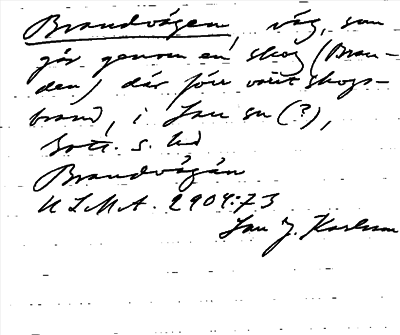 Brandvägen, väg, som
går genom en skog (Bran-
den) där förr varit skogs-
brand, i Jan sn (?),
Gott. s. hd
Brandvägän
ULMA. 2904:73
Jan J. Karlsson